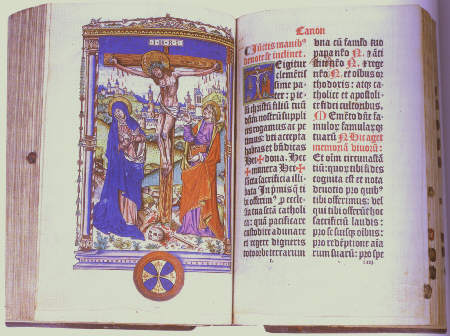 I·N·R·I
Canon
Jūctis manibꝰ
deuote se inclinet.
TE igitur
clemētissi
me pa
ter: p
christū filiū tuū
nostrū suppli
ces rogamus ac pe
timus: vti accepta
habeas et būdicas
Hec ✠ dona. Hec
✠ munera. Hec ✠
sctā sacrificia illi
bata. Inprimis q̄ ti
bi offerimꝰ p ecclesi
a tua sctā catholi
ca: quā pacificare
custodire adunare
et regere digneris
toto orbe terrarum
vna cū famlo tuo
papa nr̄o N. ⁊ āti
stite nr̄o N. ⁊ rege
nr̄o N. et oībus or
thodoxis: atqꝫ ca
tholice et apostoli
ce fidei cultoribus.
Memēto dn̄e fa
mulorū famularūqꝫ
tuarū N. Hic aget
memoriā viuorū:
Et oīm circūastā
tiū: quorū tibi fides
cognita est et nota
deuotio pro quibꝰ
tibi offerimus: vel
qui tibi offerūt hoc
sacrificiū laudis:
pro se suisqꝫ oībus
pro redēptione aīa
rum suarū: pro spe